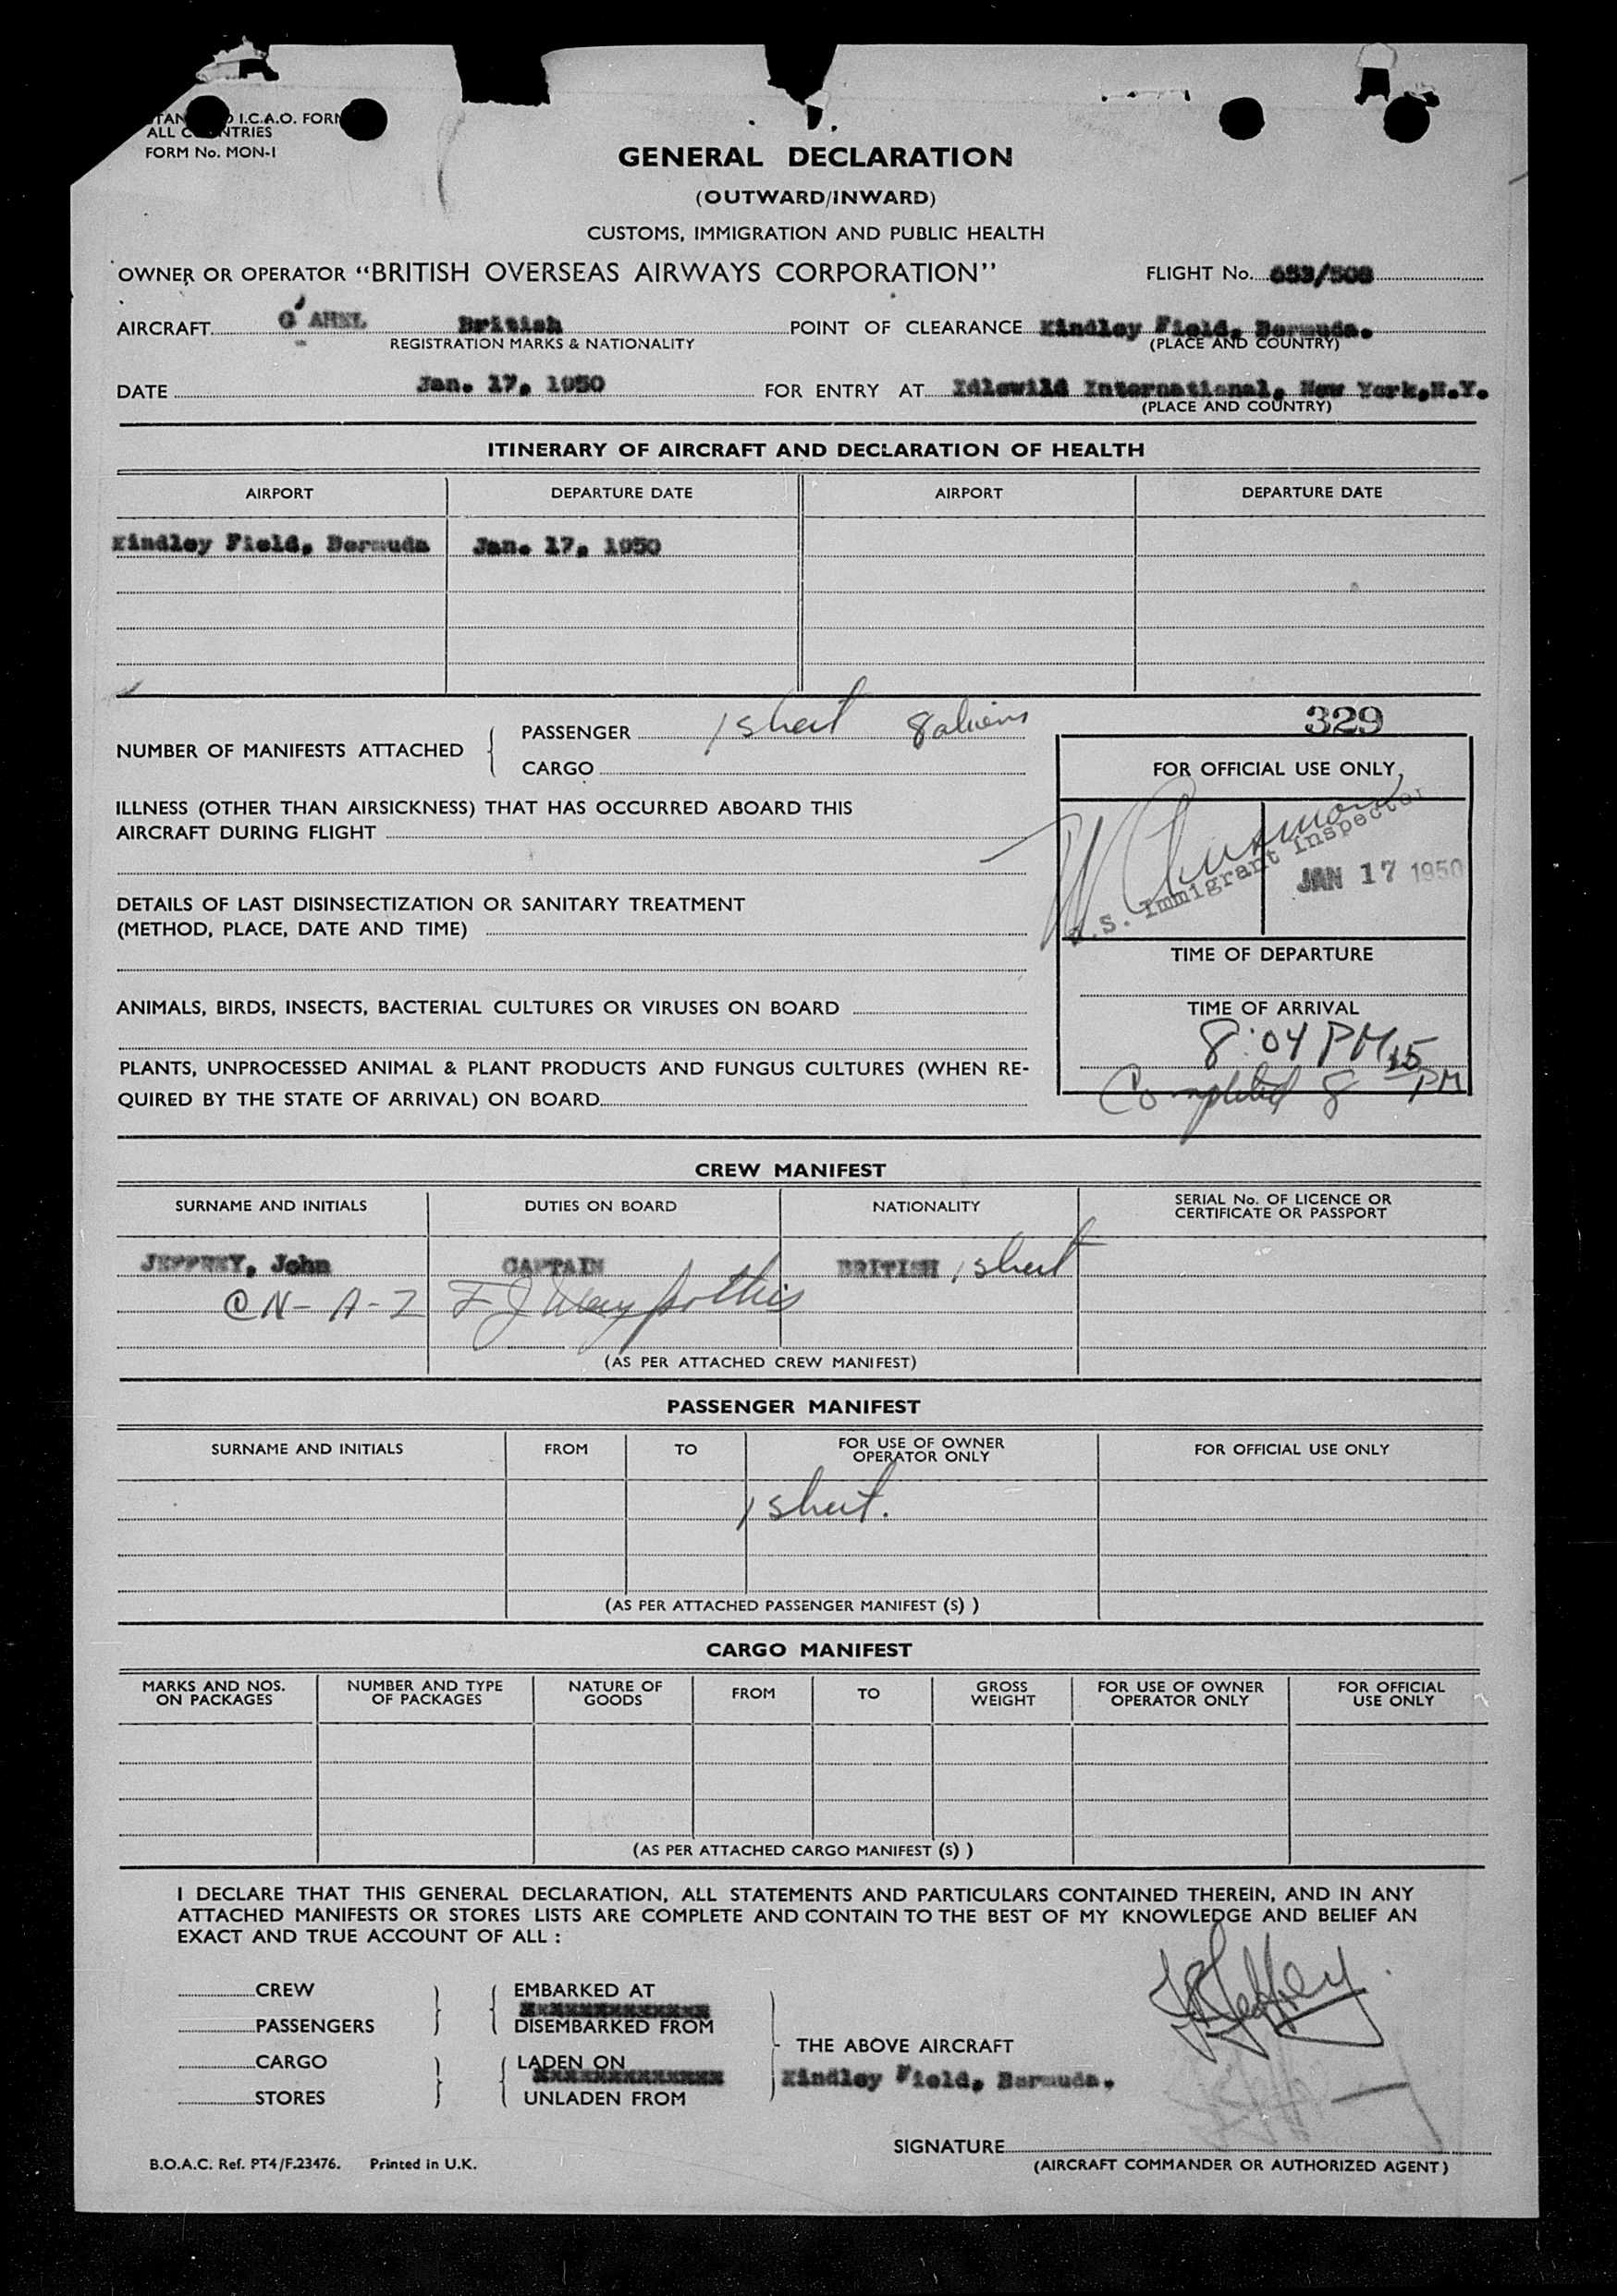 I.C.A.O. FORM
ALL COUNTRIES
FORM No. MON-1
GENERAL DECLARATION
(OUTWARD/INWARD)
CUSTOMS, IMMIGRATION AND PUBLIC HEALTH
OWNER OR OPERATOR "BRITISH OVERSEAS AIRWAYS CORPORATION" FLIGHT No.
AIRCRAFT G'AHEL British POINT OF CLEARANCE Kindley Field, Bermuda.
REGISTRATION MARKS & NATIONALITY (PLACE AND COUNTRY)
DATE Jan. 17, 1950 FOR ENTRY AT Idlewild International, New York,N.Y.
(PLACE AND COUNTRY)
ITINERARY OF AIRCRAFT AND DECLARATION OF HEALTH
AIRPORT DEPARTURE DATE AIRPORT DEPARTURE DATE
Kindley Field, Bermuda Jan. 17, 1950
329
NUMBER OF MANIFESTS ATTACHED { PASSENGER 1 sheet 8 aliens
CARGO
FOR OFFICIAL USE ONLY
ILLNESS (OTHER THAN AIRSICKNESS) THAT HAS OCCURRED ABOARD THIS
AIRCRAFT DURING FLIGHT
U.S. Immigrant Inspector
JAN 17 1950
DETAILS OF LAST DISINSECTIZATION OR SANITARY TREATMENT
(METHOD, PLACE, DATE AND TIME)
TIME OF DEPARTURE
ANIMALS, BIRDS, INSECTS, BACTERIAL CULTURES OR VIRUSES ON BOARD
TIME OF ARRIVAL
8:04 PM
Completed 8 15 PM
PLANTS, UNPROCESSED ANIMAL & PLANT PRODUCTS AND FUNGUS CULTURES (WHEN RE-
QUIRED BY THE STATE OF ARRIVAL) ON BOARD
CREW MANIFEST
SURNAME AND INITIALS DUTIES ON BOARD NATIONALITY SERIAL No. OF LICENCE OR
CERTIFICATE OR PASSPORT
JEFFREY, John CAPTAIN BRITISH 1 sheet
(AS PER ATTACHED CREW MANIFEST)
PASSENGER MANIFEST
SURNAME AND INITIALS FROM TO FOR USE OF OWNER
OPERATOR ONLY FOR OFFICIAL USE ONLY
1 sheet.
(AS PER ATTACHED PASSENGER MANIFEST (S) )
CARGO MANIFEST
MARKS AND NOS.
ON PACKAGES NUMBER AND TYPE
OF PACKAGES NATURE OF
GOODS FROM TO GROSS
WEIGHT FOR USE OF OWNER
OPERATOR ONLY FOR OFFICIAL
USE ONLY
(AS PER ATTACHED CARGO MANIFEST (S) )
I DECLARE THAT THIS GENERAL DECLARATION, ALL STATEMENTS AND PARTICULARS CONTAINED THEREIN, AND IN ANY
ATTACHED MANIFESTS OR STORES LISTS ARE COMPLETE AND CONTAIN TO THE BEST OF MY KNOWLEDGE AND BELIEF AN
EXACT AND TRUE ACCOUNT OF ALL :
CREW EMBARKED AT
PASSENGERS DISEMBARKED FROM
THE ABOVE AIRCRAFT
CARGO LADEN ON
Kindley Field, Bermuda.
STORES UNLADEN FROM
SIGNATURE
(AIRCRAFT COMMANDER OR AUTHORIZED AGENT)
B.O.A.C. Ref. PT4/F.23476. Printed in U.K.